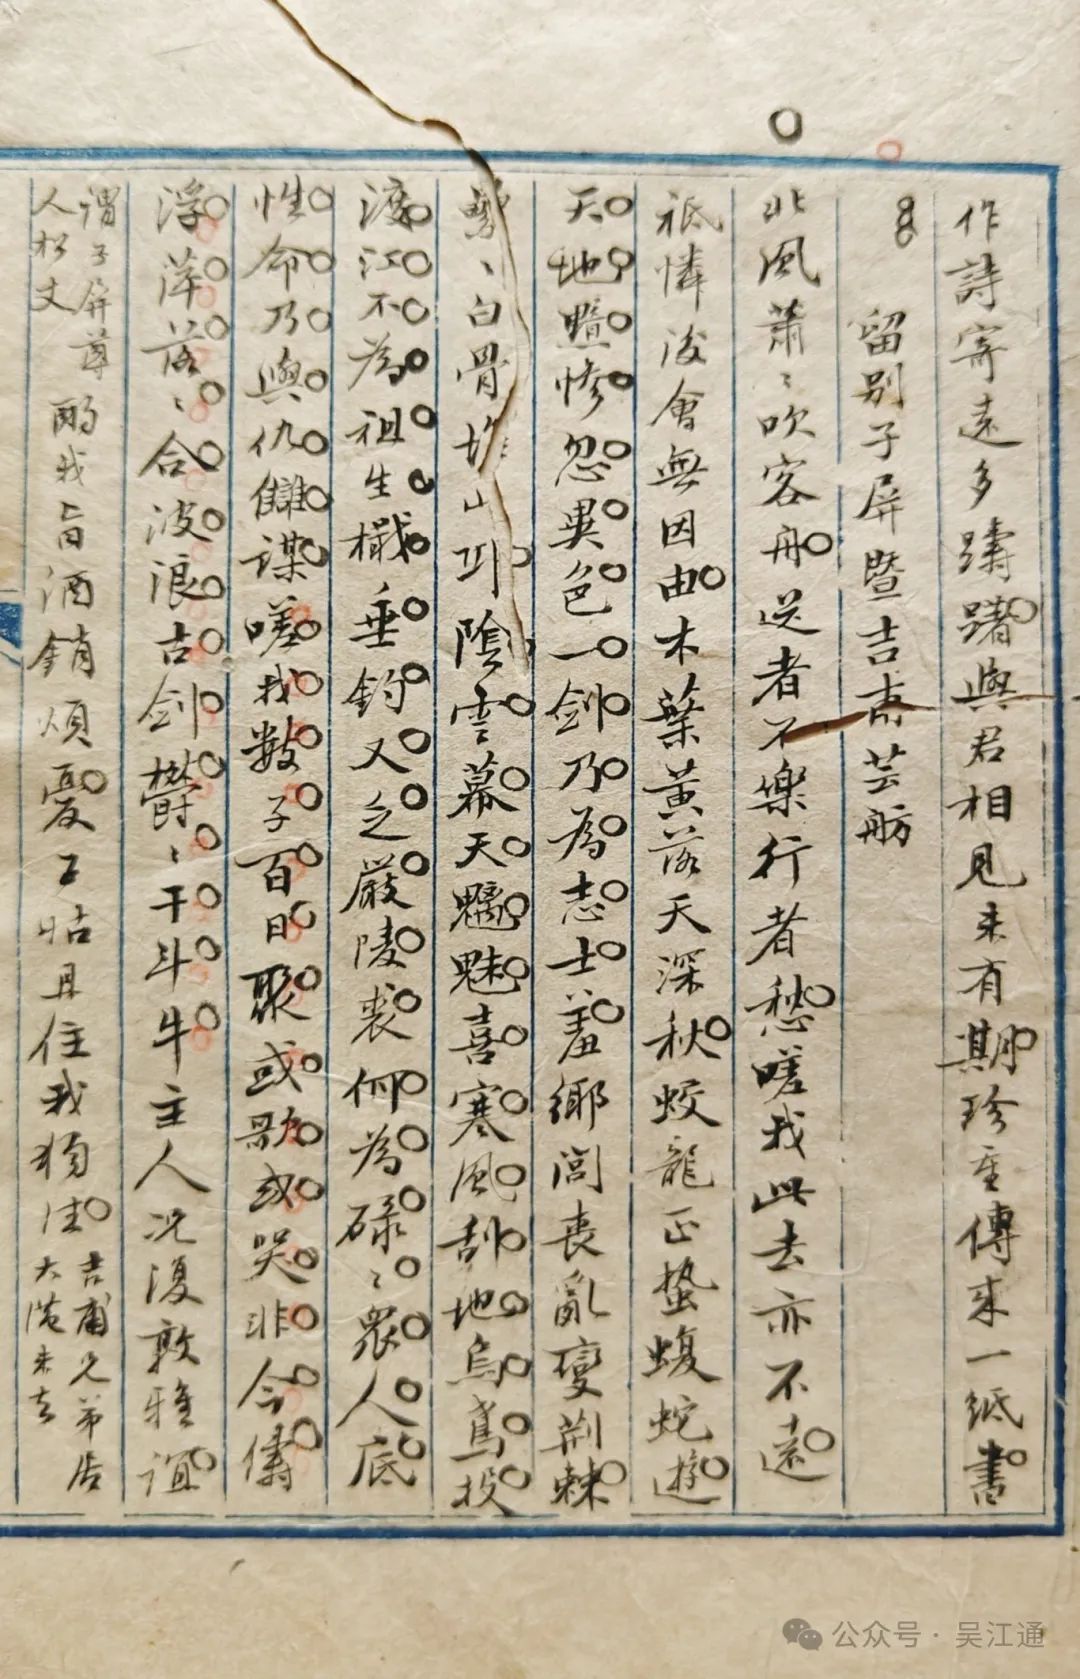 作詩寄遠多躊躇與君相見未有期珍重傳來一紙書
留別子屏暨吉甫芸舫
北風蕭〻吹客舟送者不樂行者愁嗟我此去亦不遠
祗憐後會無因由木葉黃落天深秋蛟龍正蟄蝮蛇遊
天地黯慘忽異色一劍乃為志士羞鄉閭喪亂變荊棘
〻白骨堆山邱陰雲幕天魑魅喜寒風刮地烏鳶投
渡江不為祖生楫垂釣又乏嚴陵裘何為碌〻眾人底
性命乃與仇讎謀嗟我數子百日聚或歌或哭非今儔
浮萍落〻合波浪古劍鬱〻干斗牛主人況復敦雅誼
謂子屏尊
人松丈
酌我旨酒銷煩憂君姑且住我獨往
吉甫兄弟居
大港未去
公众号·吴江通